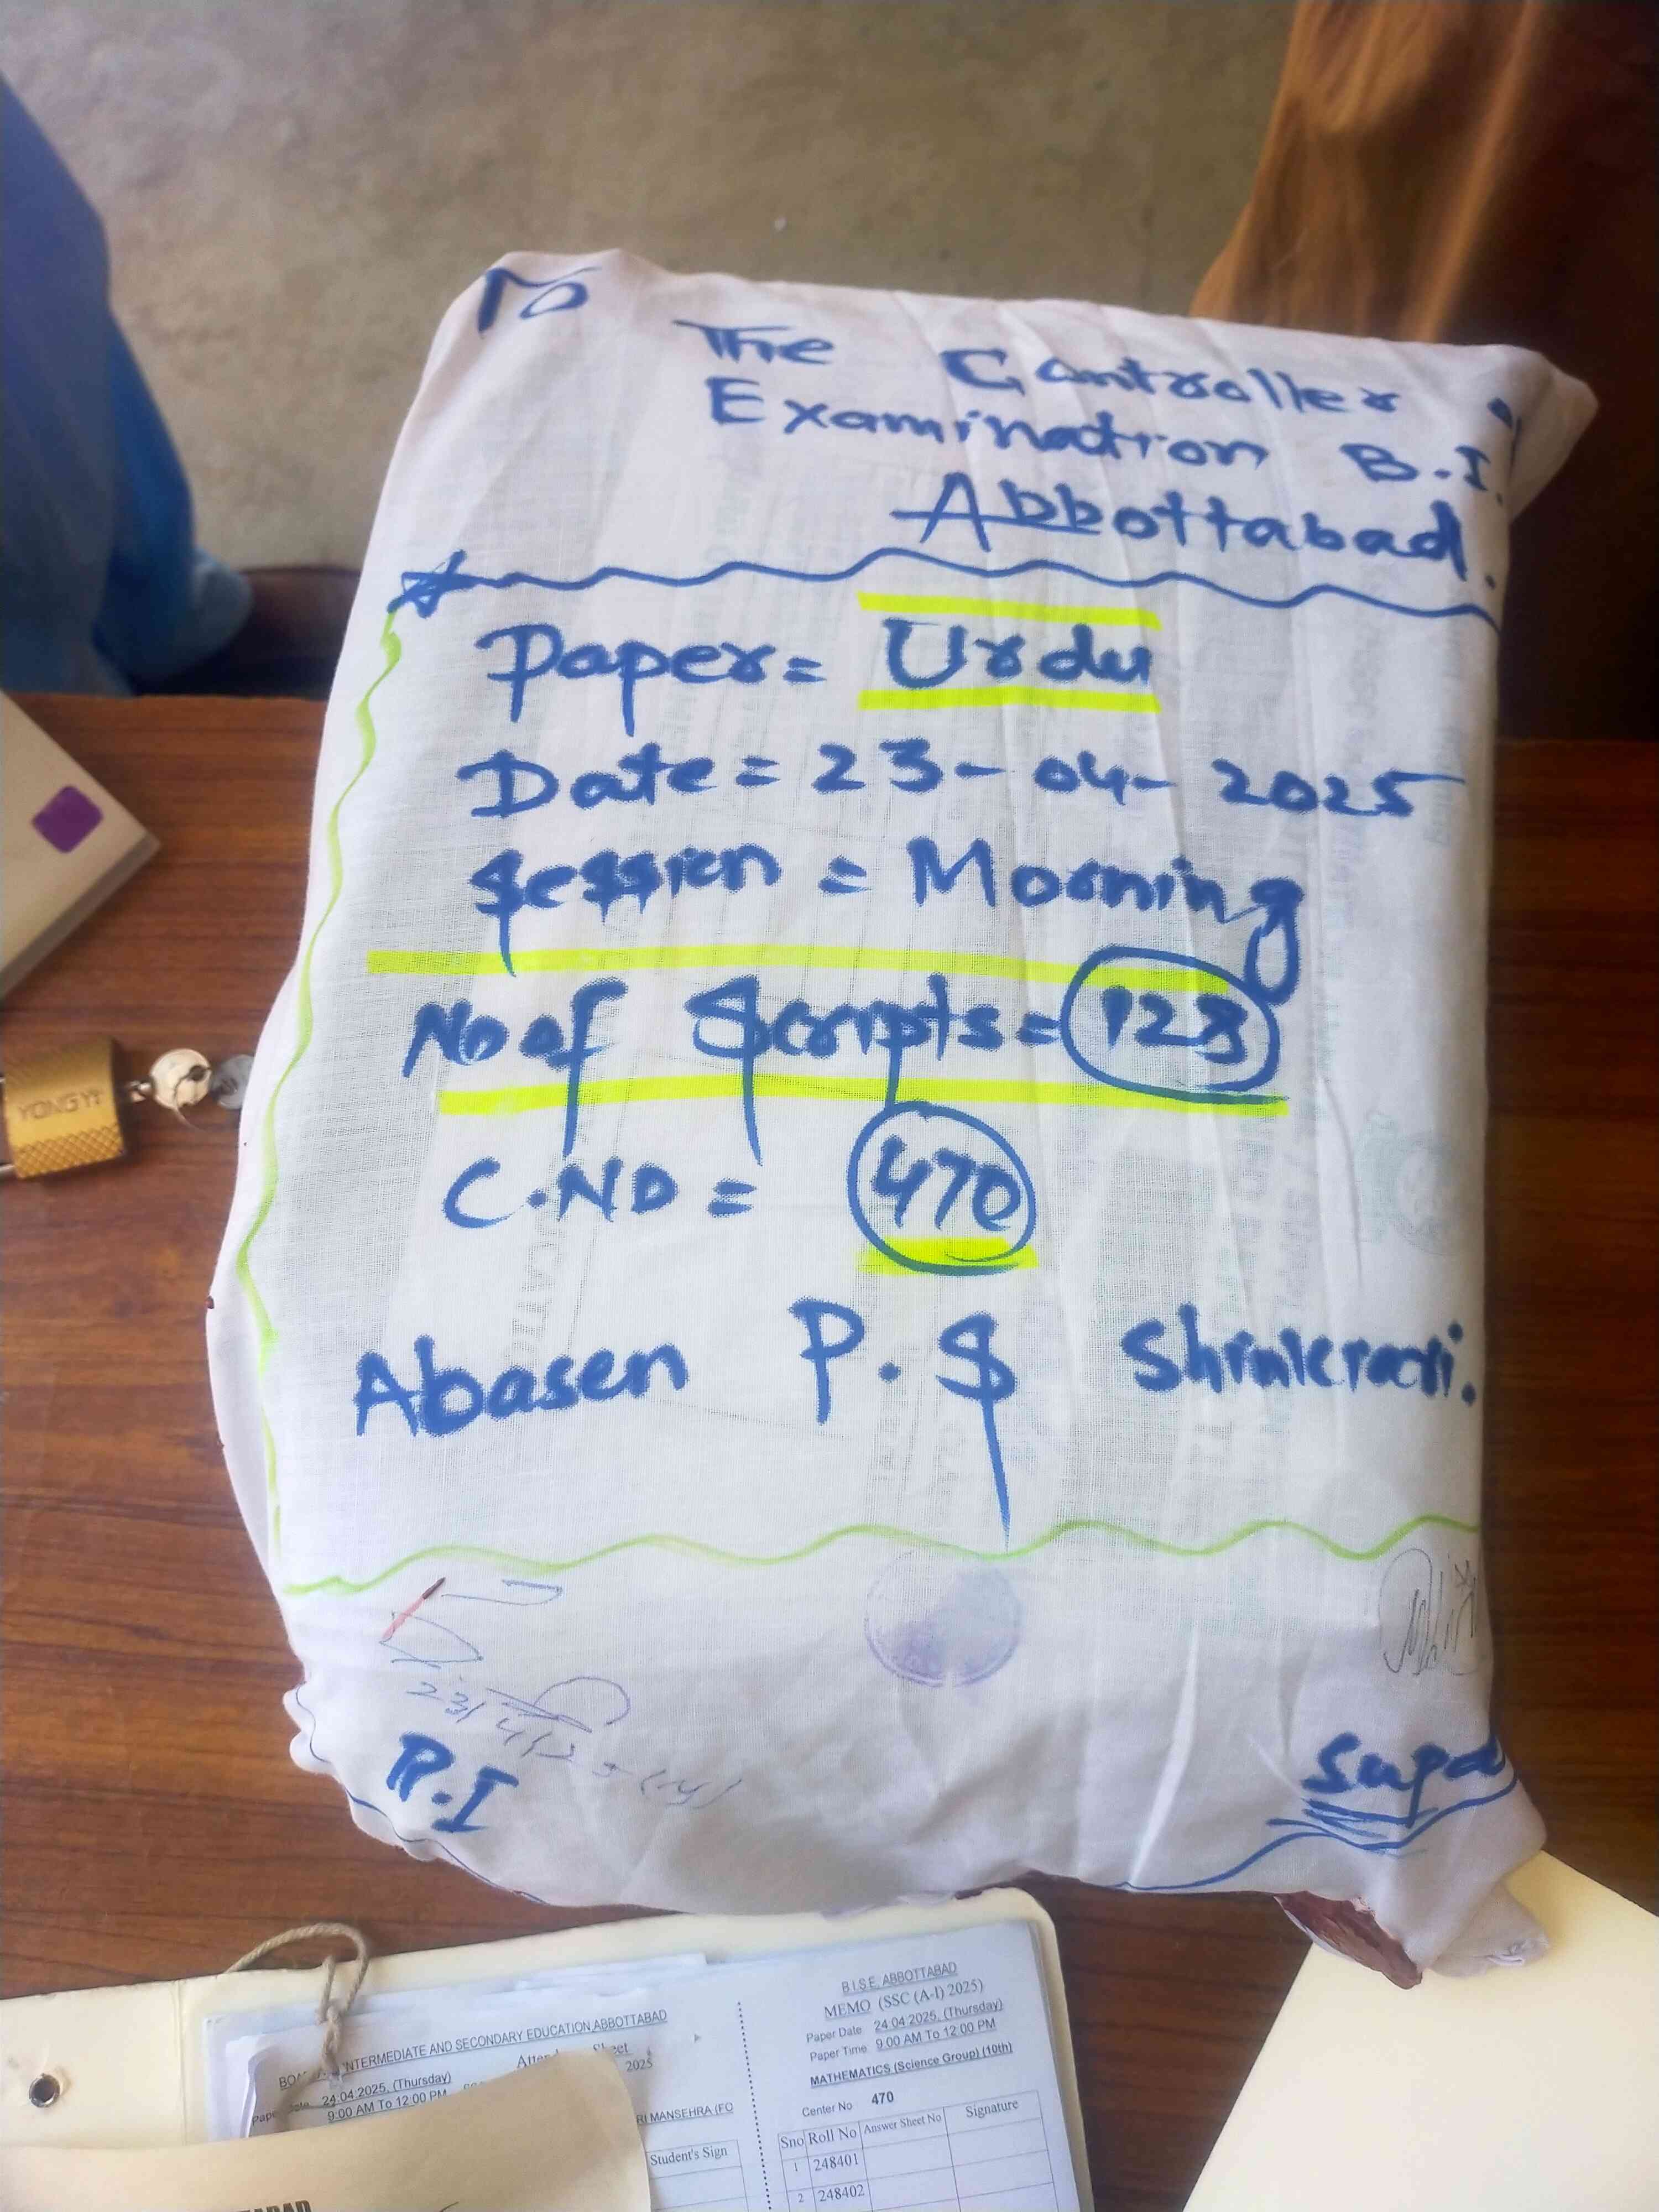 To
The Controller of
Examination B.I.
Abbottabad.
Paper = Urdu
Date = 23-04-2025
Session = Morning
No of Scripts = 123
C.No = 470
Abasen P.S Shinkiari.
R.I
Supd
YONGYI
INTERMEDIATE AND SECONDARY EDUCATION, ABBOTTABAD
2025
24.04.2025, (Thursday)
9:00 AM To 12:00 PM
RI MANSEHRA (FO
Student's Sign
B.I.S.E, ABBOTTABAD
MEMO (SSC (A-I) 2025)
Paper Date 24.04.2025, (Thursday)
Paper Time 9:00 AM To 12:00 PM
MATHEMATICS (Science Group) (10th)
Center No 470
Sno Roll No Answer Sheet No Signature
1 248401
2 248402